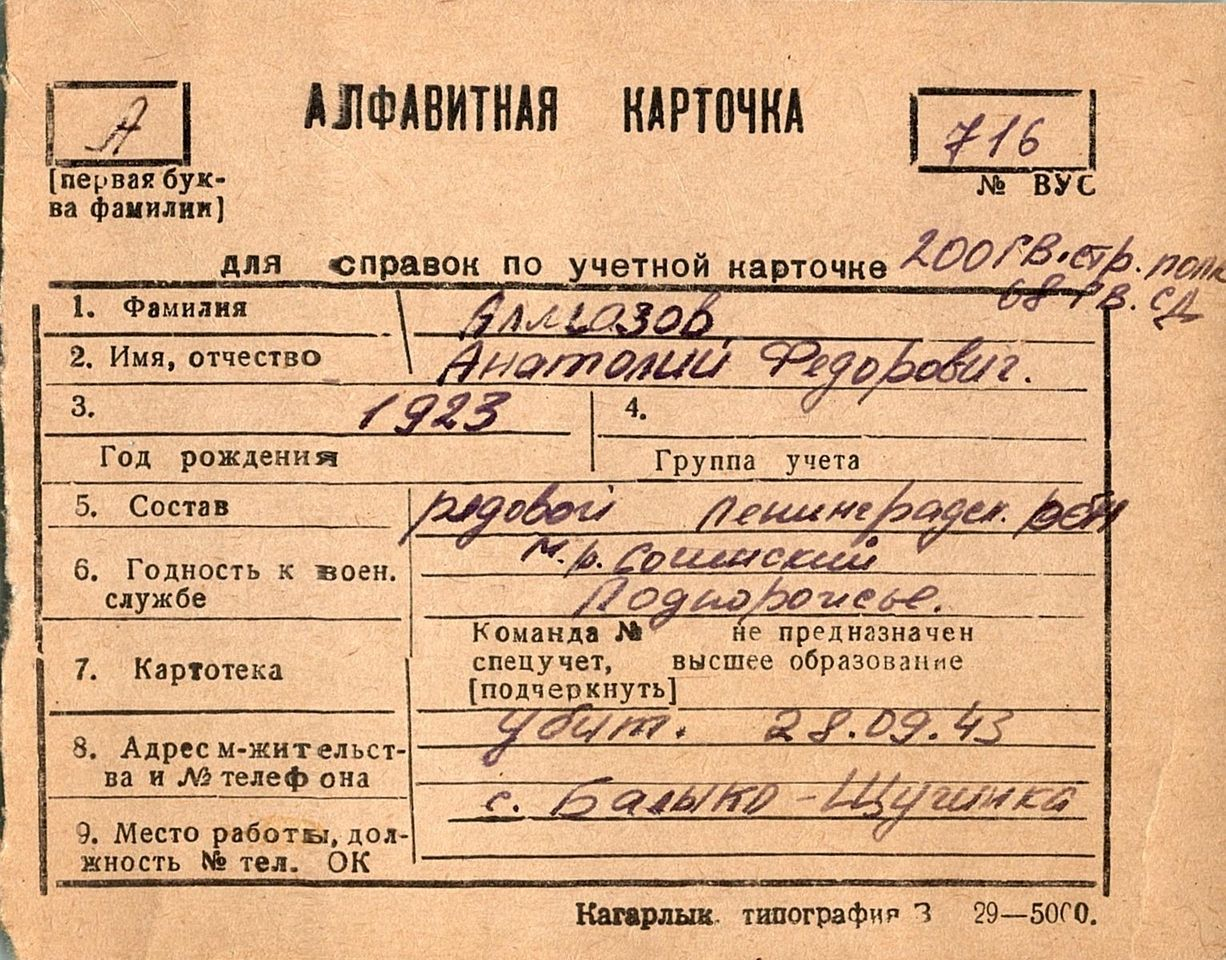 А
АЛФАВИТНАЯ КАРТОЧКА
716
[первая бук-
ва фамилии]
№ ВУС
для справок по учетной карточке
200 гв. стр. полк
68 гв. СД
1. Фамилия Алмазов
2. Имя, отчество Анатолий Федорович.
3. 1923 4.
Год рождения Группа учета
5. Состав рядовой Ленинградск. обл
м.р. Сошинский
6. Годность к воен.
службе Подпорожье.
Команда № не предназначен
7. Картотека спецучет, высшее образование
[подчеркнуть]
убит. 28.09.43
8. Адрес м-жительст-
ва и № телефона
с. Балыко-Щучинка
9. Место работы, дол-
жность № тел. ОК
Кагарлык типография З 29—5000.